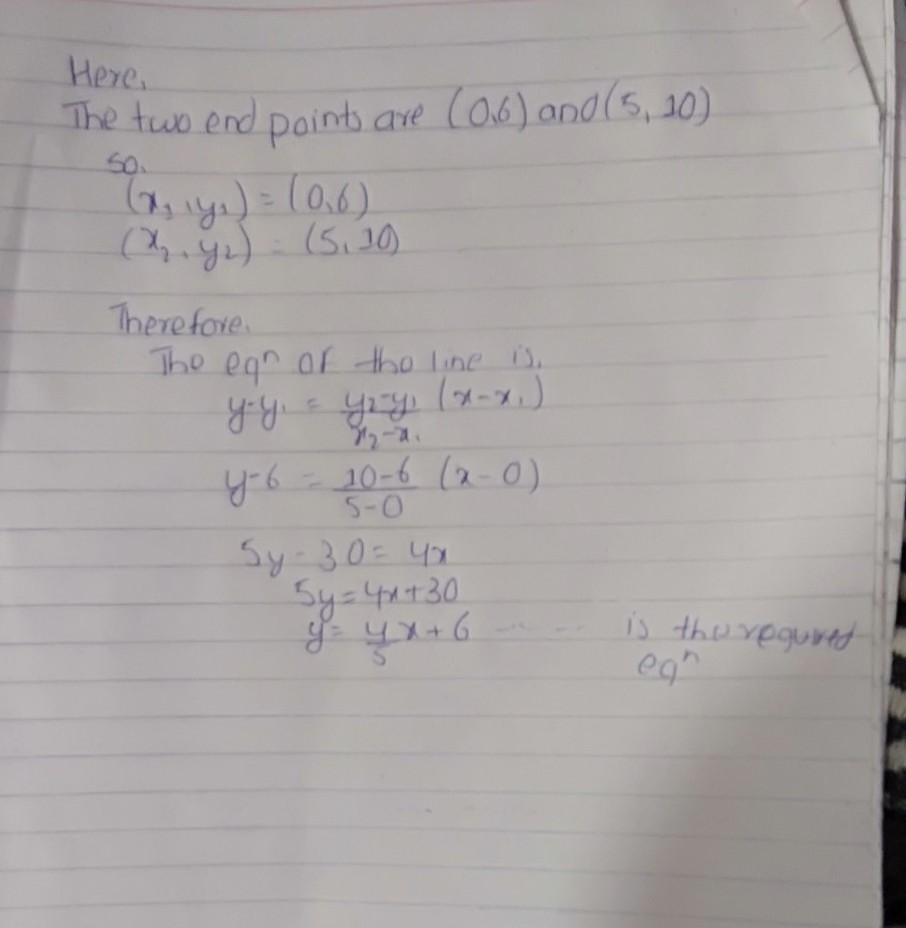 Here,
The two end points are (0,6) and (5, 10)
so,
(x₁, y₁) = (0,6)
(x₂, y₂) = (5, 10)
Therefore,
The eqⁿ of the line is,
y-y₁ = y₂-y₁ (x-x₁)
x₂-x₁
y-6 = 10-6 (x-0)
5-0
5y-30= 4x
5y=4x+30
y= 4 x+6 ...... is the required
5
eqⁿ